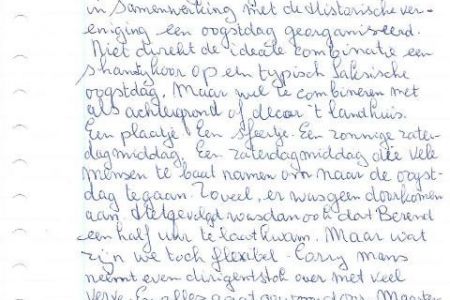 in samenwerking met de Historische ver-
eniging een oogstdag georganiseerd.
Niet direkt de ideale combinatie een
shantykoor op een typisch Saksische
oogstdag. Maar wel te combineren met
als achtergrond of decor 't landhuis.
Een plaatje. Een sfeertje. Een zonnige zater-
dagmiddag. Een zaterdagmiddag die vele
mensen te baat namen om naar de oogst-
dag te gaan. Zoveel, er was geen doorkomen
aan. Het gevolg was dan ook dat Berend
een half uur te laat kwam. Maar wat
zijn we toch flexibel. Corry mans
neemt even dirigentstok over met veel
verve. En alles gaat gewoon door.